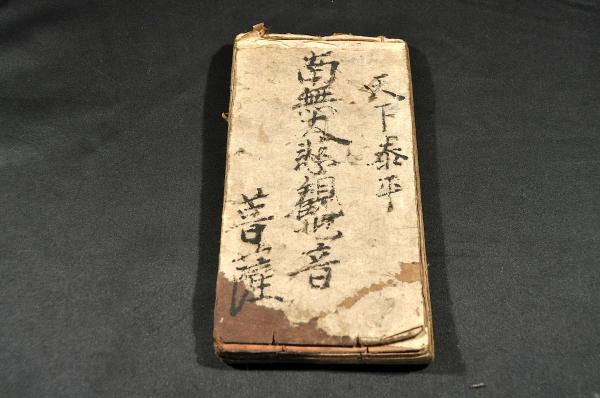 天下泰平
南無大悲観世音
菩薩